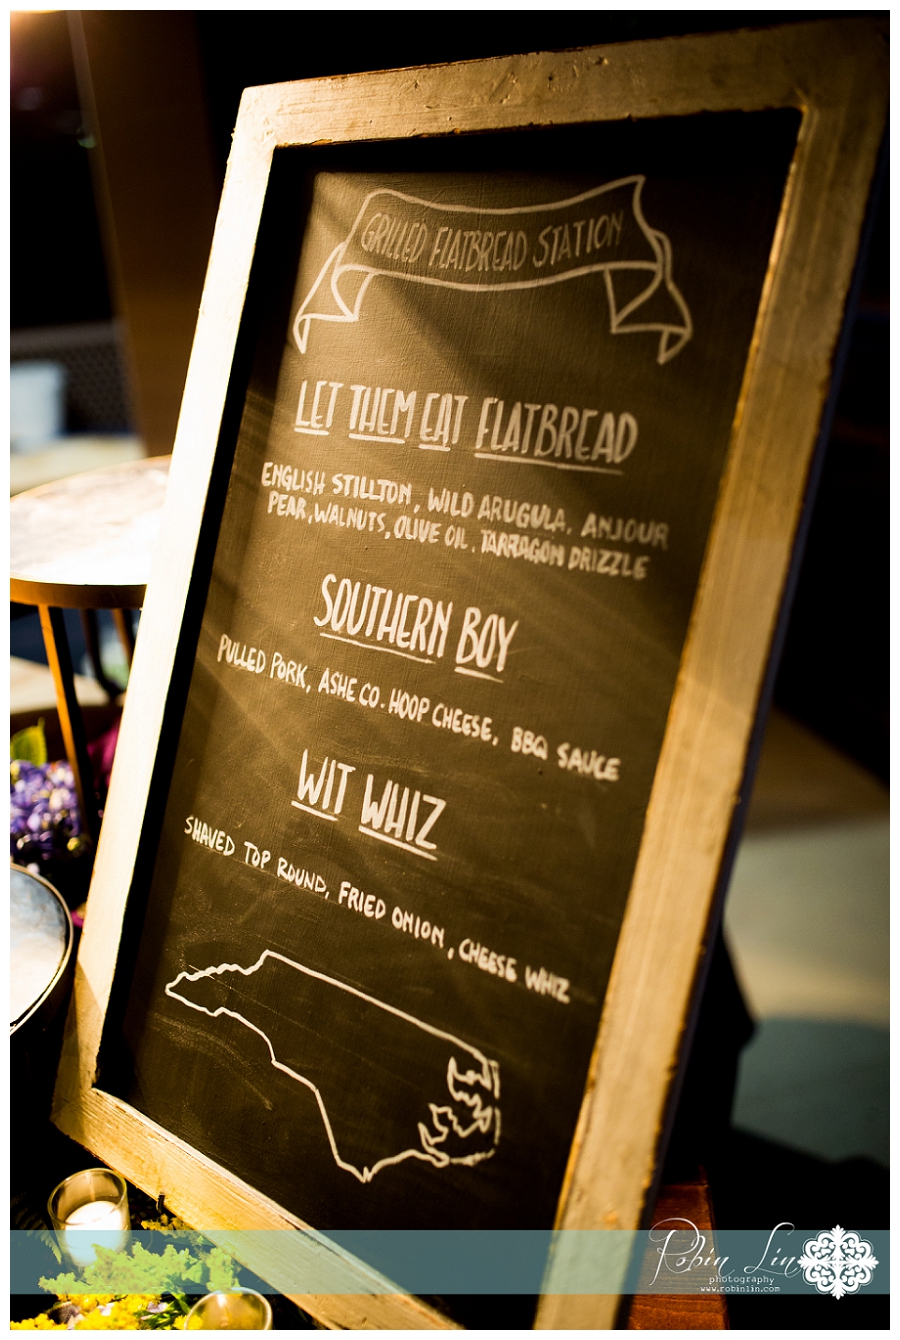 GRILLED FLATBREAD STATION
LET THEM EAT FLATBREAD
ENGLISH STILLTON, WILD ARUGULA, ANJOUR
PEAR, WALNUTS, OLIVE OIL, TARRAGON DRIZZLE
SOUTHERN BOY
PULLED PORK, ASHE CO. HOOP CHEESE, BBQ SAUCE
WIT WHIZ
SHAVED TOP ROUND, FRIED ONION, CHEESE WHIZ
Robin Lin
photography
www.robinlin.com